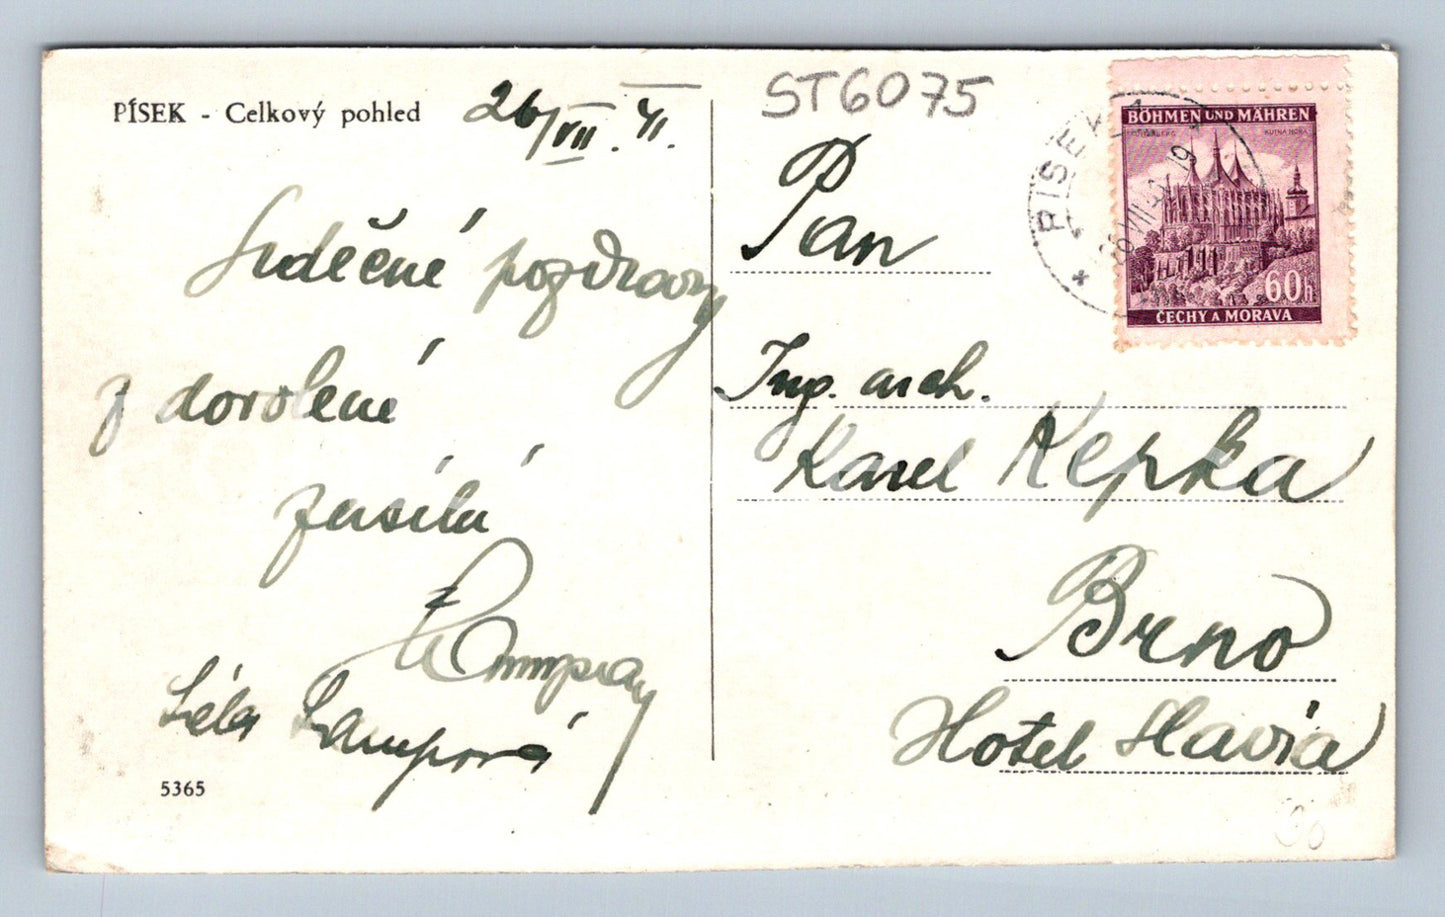 PÍSEK - Celkový pohled
26/VII. 41.
Srdečné pozdravy
z dovolené
zasílá
Léla Lampová
5365
ST6075
Pan
Ing. arch.
Karel Kepka
Brno
Hotel Slavia
PÍSEK 1
BÖHMEN UND MÄHREN
KUTNÁ HORA
60h
ČECHY A MORAVA